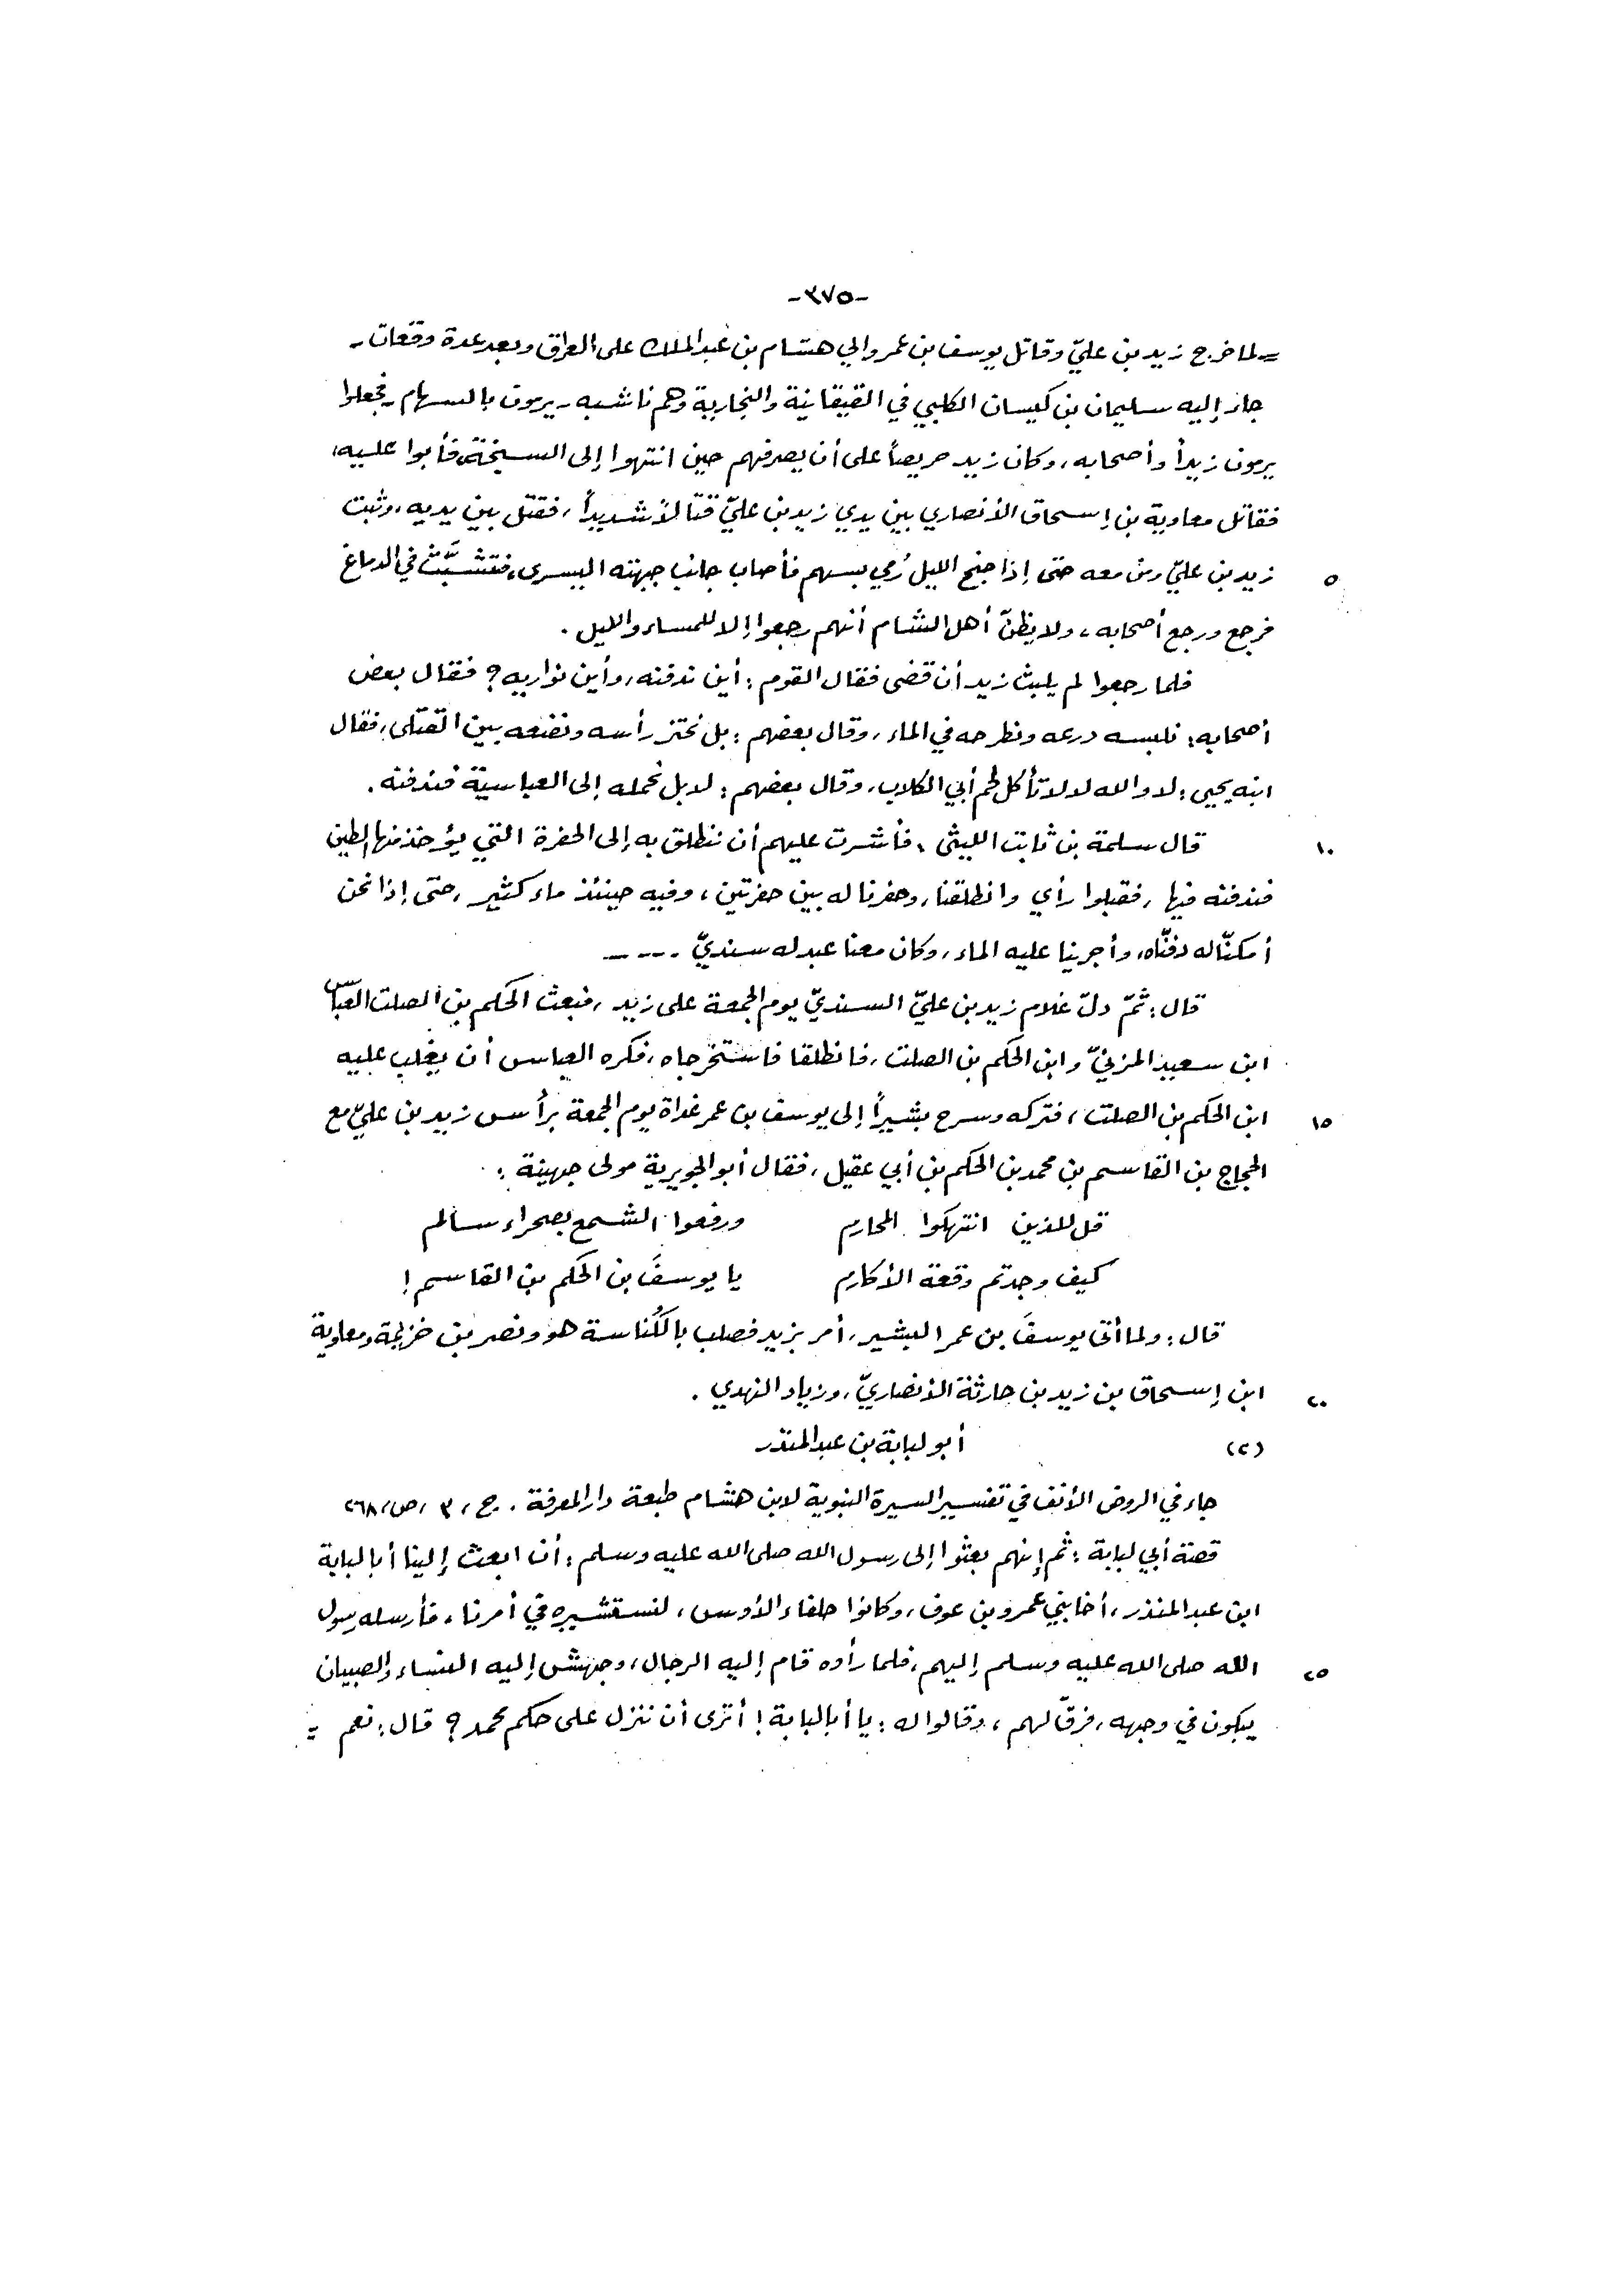 -٣٧٥-
= لما خرج زيد بن عليّ وقاتل يوسف بن عمر والي هشام بن عبد الملك على العراق وبعد عدة وقعات -
جاء إليه سليمان بن كيسان الكلبي في القيقانية والبخارية وهم ناشبه - يرمون بالسهام - فجعلوا
يرمون زيداً وأصحابه، وكان زيد حريصاً على أن يصرفهم حين انتهوا إلى السبخة، فأبوا عليه،
فقاتل معاوية بن إسحاق الأنصاري بين يدي زيد بن عليّ قتالاً شديداً، فقتل بين يديه، وثبت
زيد بن عليّ ومن معه حتى إذا جنح الليل رُمي بسهم فأصاب جانب جبهته اليسرى، فتشبَّث في الدماغ ٥
فرجع ورجع أصحابه، ولا يظنّ أهل الشام أنهم رجعوا إلا للمساء والليل .
فلما رجعوا لم يلبث زيد أن قضى فقال القوم : أين ندفنه، وأين نواريه ؟ فقال بعض
أصحابه : نلبسه درعه ونطرحه في الماء، وقال بعضهم : بل نحتز رأسه ونضعه بين القتلى، فقال
ابنه يحيى : لا والله لا تأكل لحم أبي الكلاب، وقال بعضهم : لا بل نحمله إلى العباسيّة فندفنه .
قال سلمة بن ثابت الليثي ، فأشرت عليهم أن ننطلق به إلى الحفرة التي يؤخذ منها الطين ١٠
فندفنه فيها ، فقبلوا رأي وانطلقنا، وحفرنا له بين حفرتين ، وفيه حينئذ ماء كثير ، حتى إذا نحن
أمكنّا له دفنّاه، وأجرينا عليه الماء، وكان معنا عبد له سنديّ - - - -
قال : ثمّ دلّ غلام زيد بن عليّ السنديّ يوم الجمعة على زيد ، فبعث الحكم بن الصلت العباس
ابن سعيد المزنيّ وابن الحكم بن الصلت ، فانطلقا فاستخرجاه ، فكره العباس أن يغلب عليه
ابن الحكم بن الصلت ، فتركه وسرح بشيراً إلى يوسف بن عمر غداة يوم الجمعة برأس زيد بن عليّ مع ١٥
الحجاج بن القاسم بن محمد بن الحكم بن أبي عقيل ، فقال أبو الجويرية مولى جهينة :
قل للذين انتهكوا المحارم ورفعوا الشمع بصحراء سالم
كيف وجدتم وقعة الأكارم يا يوسفَ بن الحكم بن القاسم !
قال : ولما أتى يوسفَ بن عمر البشير ، أمر بزيد فصلب بالكُناسة هو ونصر بن خزيمة ومعاوية
ابن إسحاق بن زيد بن حارثة الأنصاريّ ، وزياد النهدي . ٢٠
(٢) أبو لبابة بن عبد المنذر
جاء في الروض الأنف في تفسير السيرة النبوية لابن هشام طبعة دار المعرفة . ج ، ٣ ، ص ، ٢٦٨
قصة أبي لبابة : ثم إنهم بعثوا إلى رسول الله صلى الله عليه وسلم : أن ابعث إلينا أبا لبابة
ابن عبد المنذر ، أخا بني عمرو بن عوف ، وكانوا حلفاء الأوس ، لنستشيره في أمرنا ، فأرسله رسول
الله صلى الله عليه وسلم إليهم، فلما رأوه قام إليه الرجال ، وجهش إليه النساء والصبيان ٢٥
يبكون في وجهه ، فرقّ لهم ، وقالوا له : يا أبا لبابة ! أترى أن ننزل على حكم محمد ؟ قال : نعم =